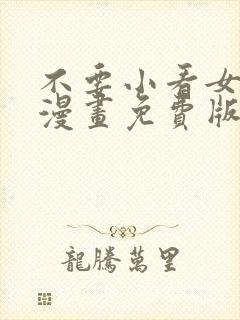 不要小看女
漫畫免費版
龍騰萬里